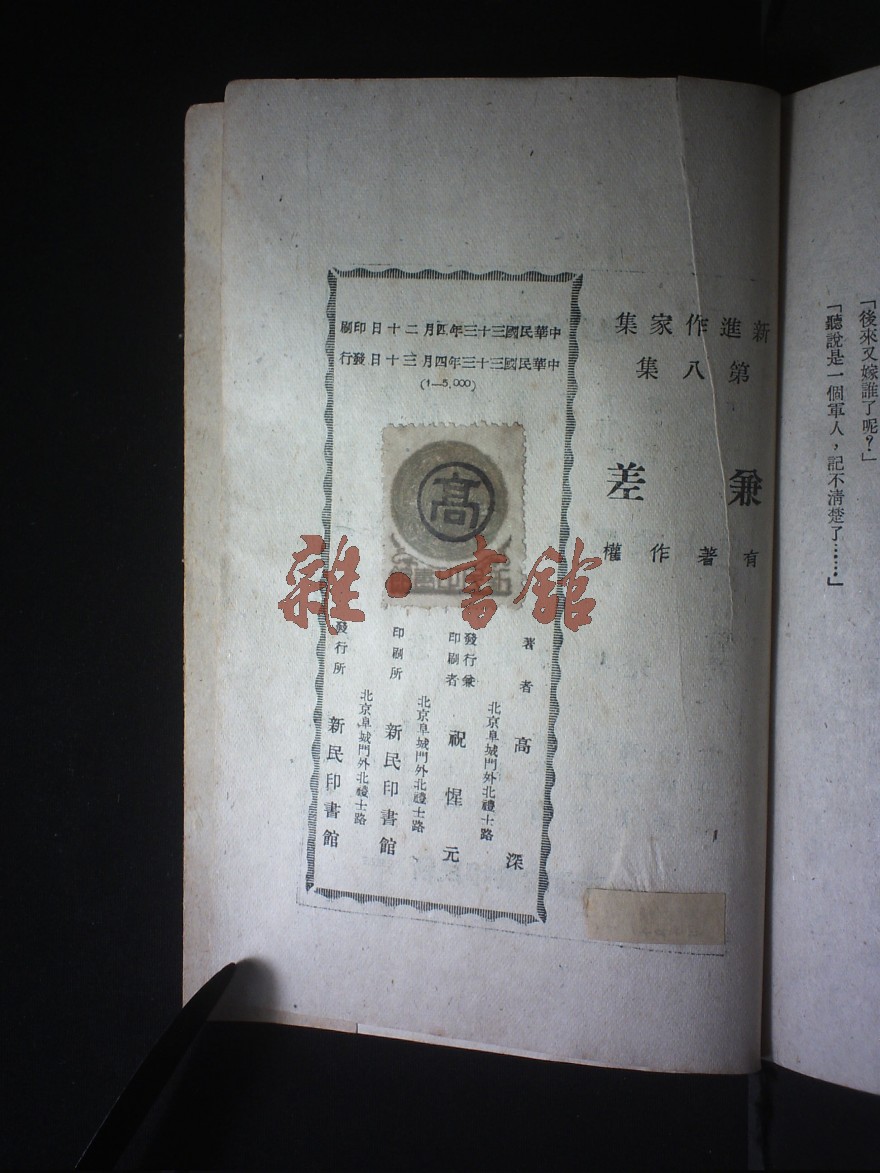 「後來又嫁誰了呢？」
「聽說是一個軍人，記不清楚了……」
新進作家集
第八集
兼差
有著作權
中華民國三十三年四月二十日印刷
中華民國三十三年四月三十日發行
(1—5,000)
高
雜·書館
著者 高深
北京阜城門外北禮士路
發行兼印刷者 祝惺元
北京阜城門外北禮士路
印刷所 新民印書館
北京阜城門外北禮士路
發行所 新民印書館